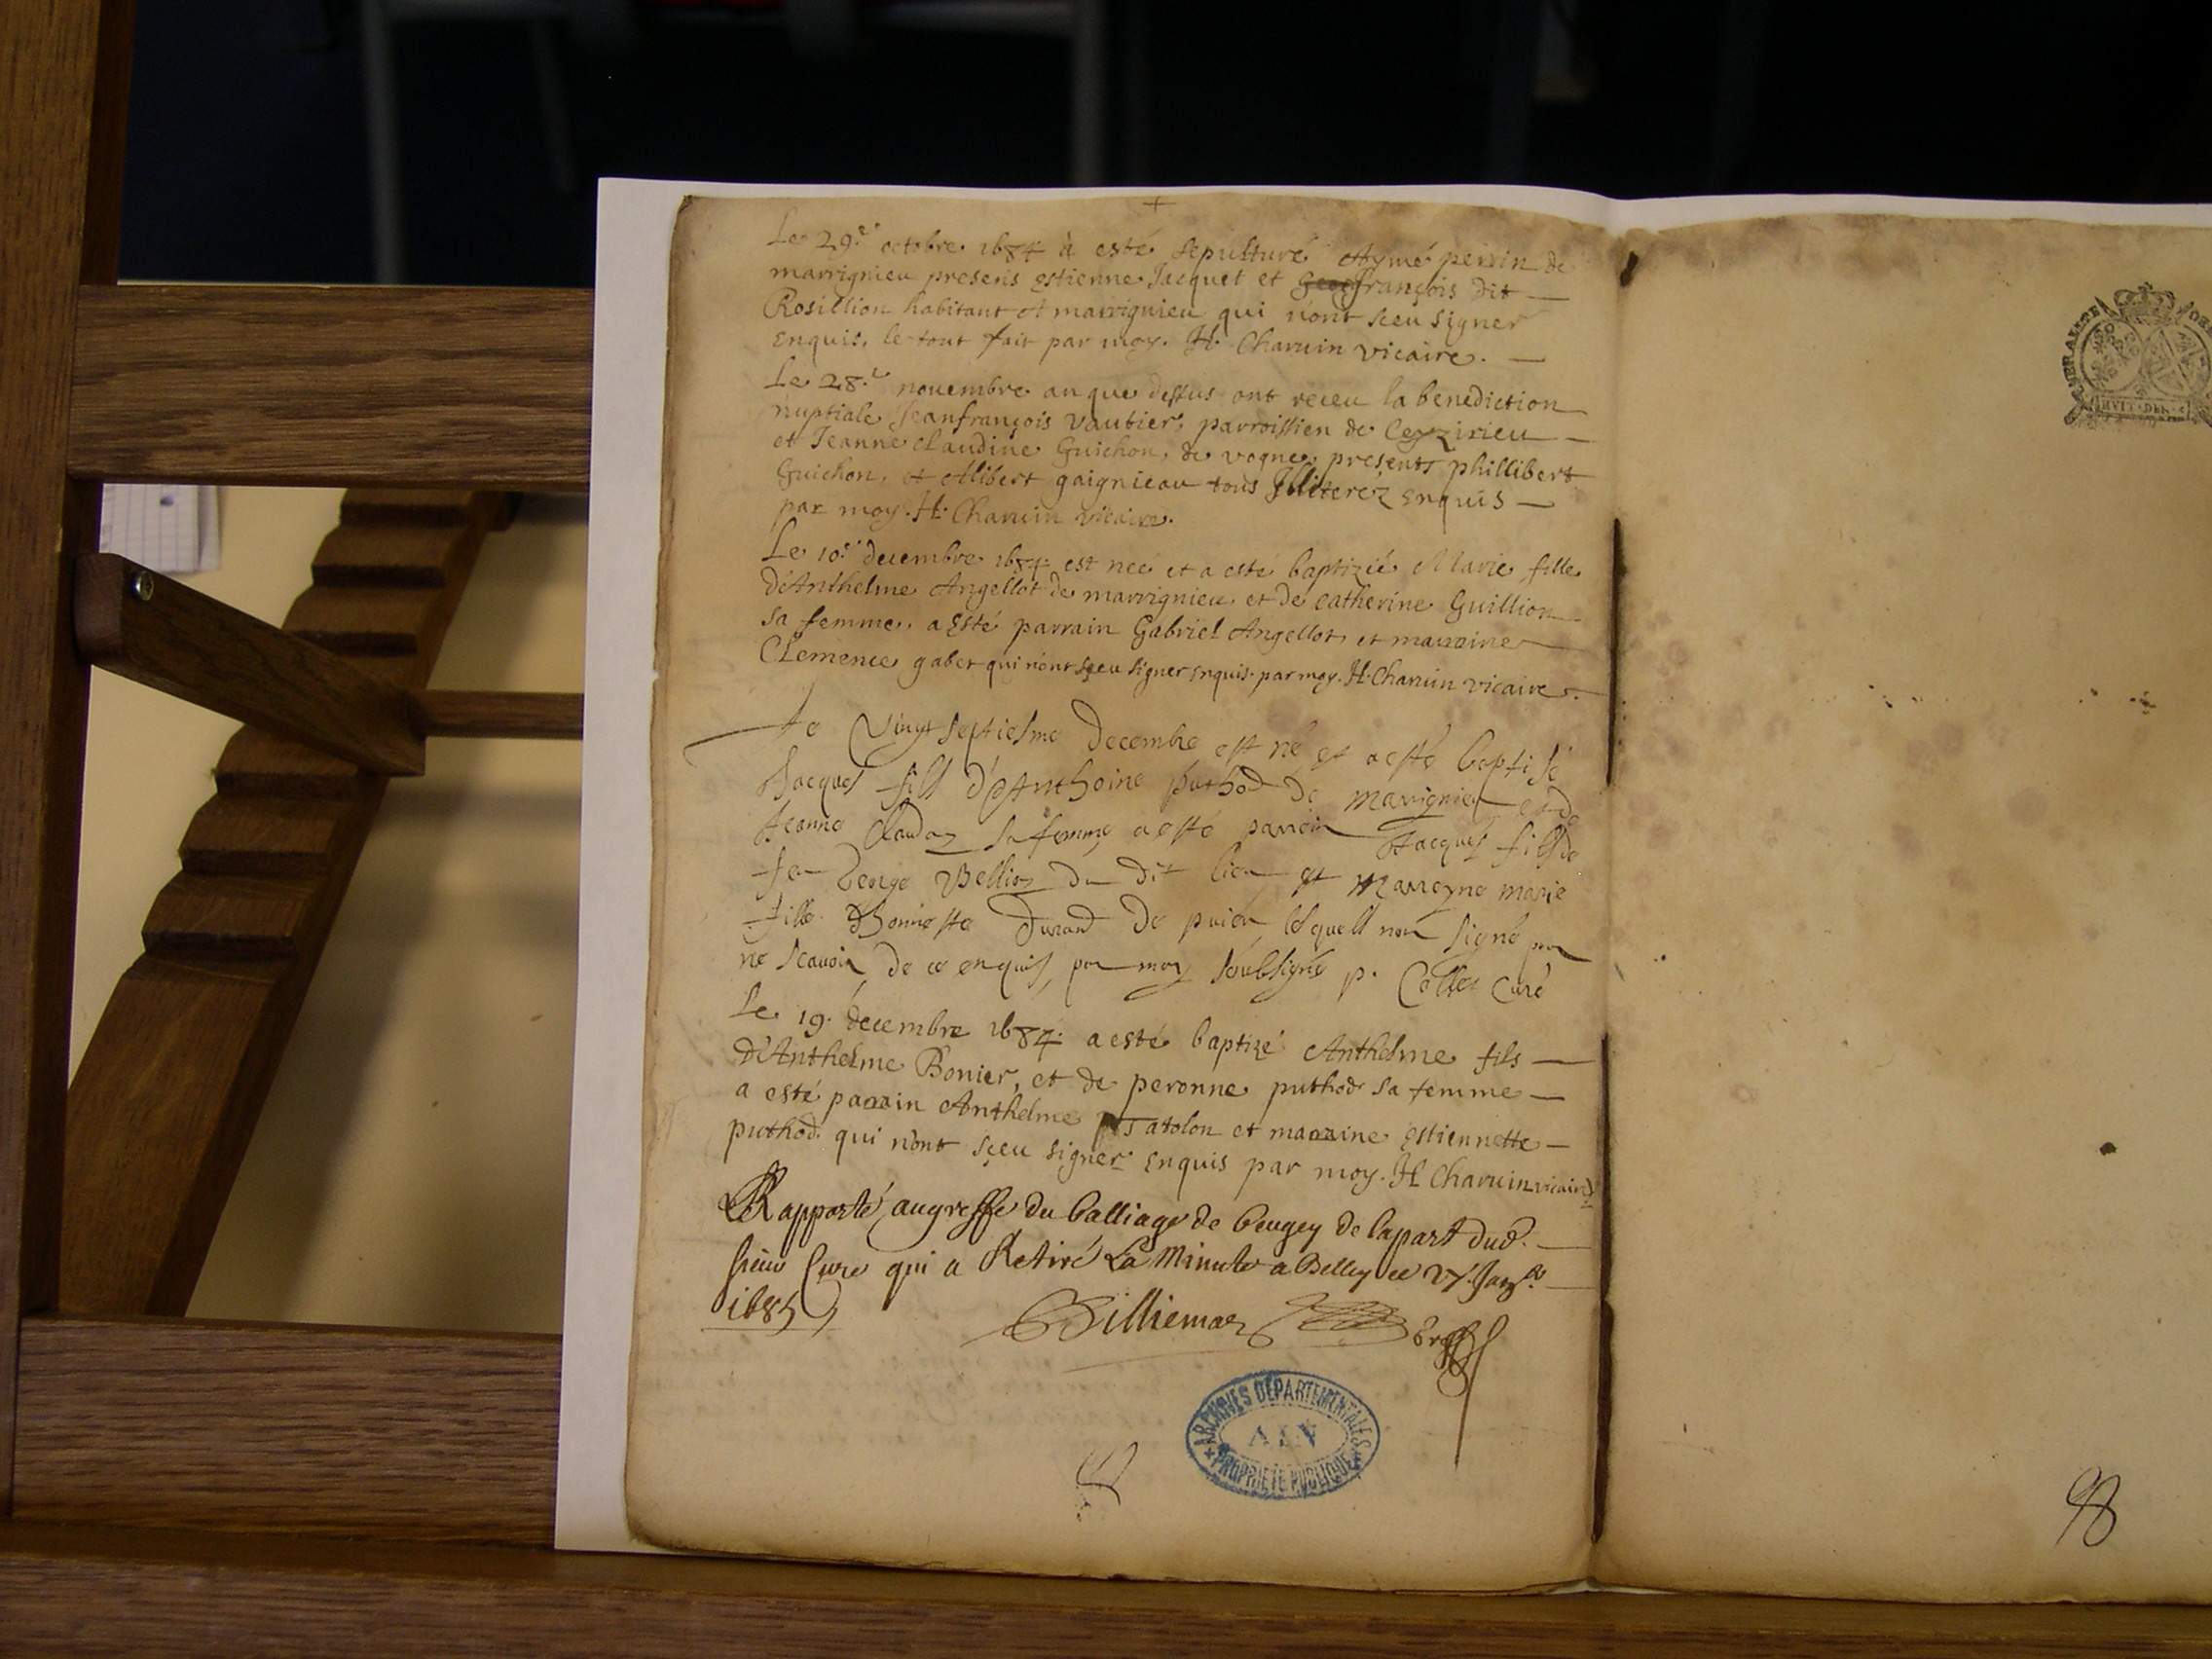 Le 29.e octobre 1684 à esté sepulturé Aymé perrin de
marrignieu presens estienne Jacquet et françois dit
Rosillion habitant A marrignieu qui n'ont sceu signer
enquis. le tout fait par moy. H. Charuin vicaire.
Le 28.e novembre an que dessus ont receu la benediction
nuptiale Jeanfrançois Vautier, parroissien de Ceyzirieu
et Jeanne claudine Guichon, de vogne, presents phillibert
Guichon, et Alibert gaignieau tous Illiterez enquis
par moy. H. Charuin vicaire.
Le 10.e decembre 1684 est neé et a esté baptizié Marie fille
d'Anthelme Angellot de marrignieu et de catherine Guillion
sa femme, a esté parrain Gabriel Angellot, et marraine
Clemence gabet qui n'ont sçeu signer enquis. par moy. H. Charuin vicaire.
Le Vingt septiesme Decembre est né et a esté baptisé
Jacques fils d'Anthoine puthod de Marrignieu et de
Jeanne Claudaz sa femme a esté parrein Jacques fils de
feu George Bellioz du dit lieu et Marreyne marie
fille Dhonneste Durand de lesquels nont signé pour
ne scauoir, de ce enquis, par moy soubsigné p. Collet Curé
Le 19. decembre 1684. a esté baptizé Anthelme fils
d'Anthelme Bonier, et de peronne puthod sa femme
a esté parrain Anthelme Tatolon et marraine Estiennette
puthod. qui n'ont sçeu signer enquis par moy. H Charuin vicaire
Rapporté au greffe du balliage de beugey de la part dud.
sieur Curé qui a Retiré La Minute a Belley ce Janv.r
1685
Billiemaz
ARCHIVES DÉPARTEMENTALES
AIN
PROPRIÉTÉ PUBLIQUE